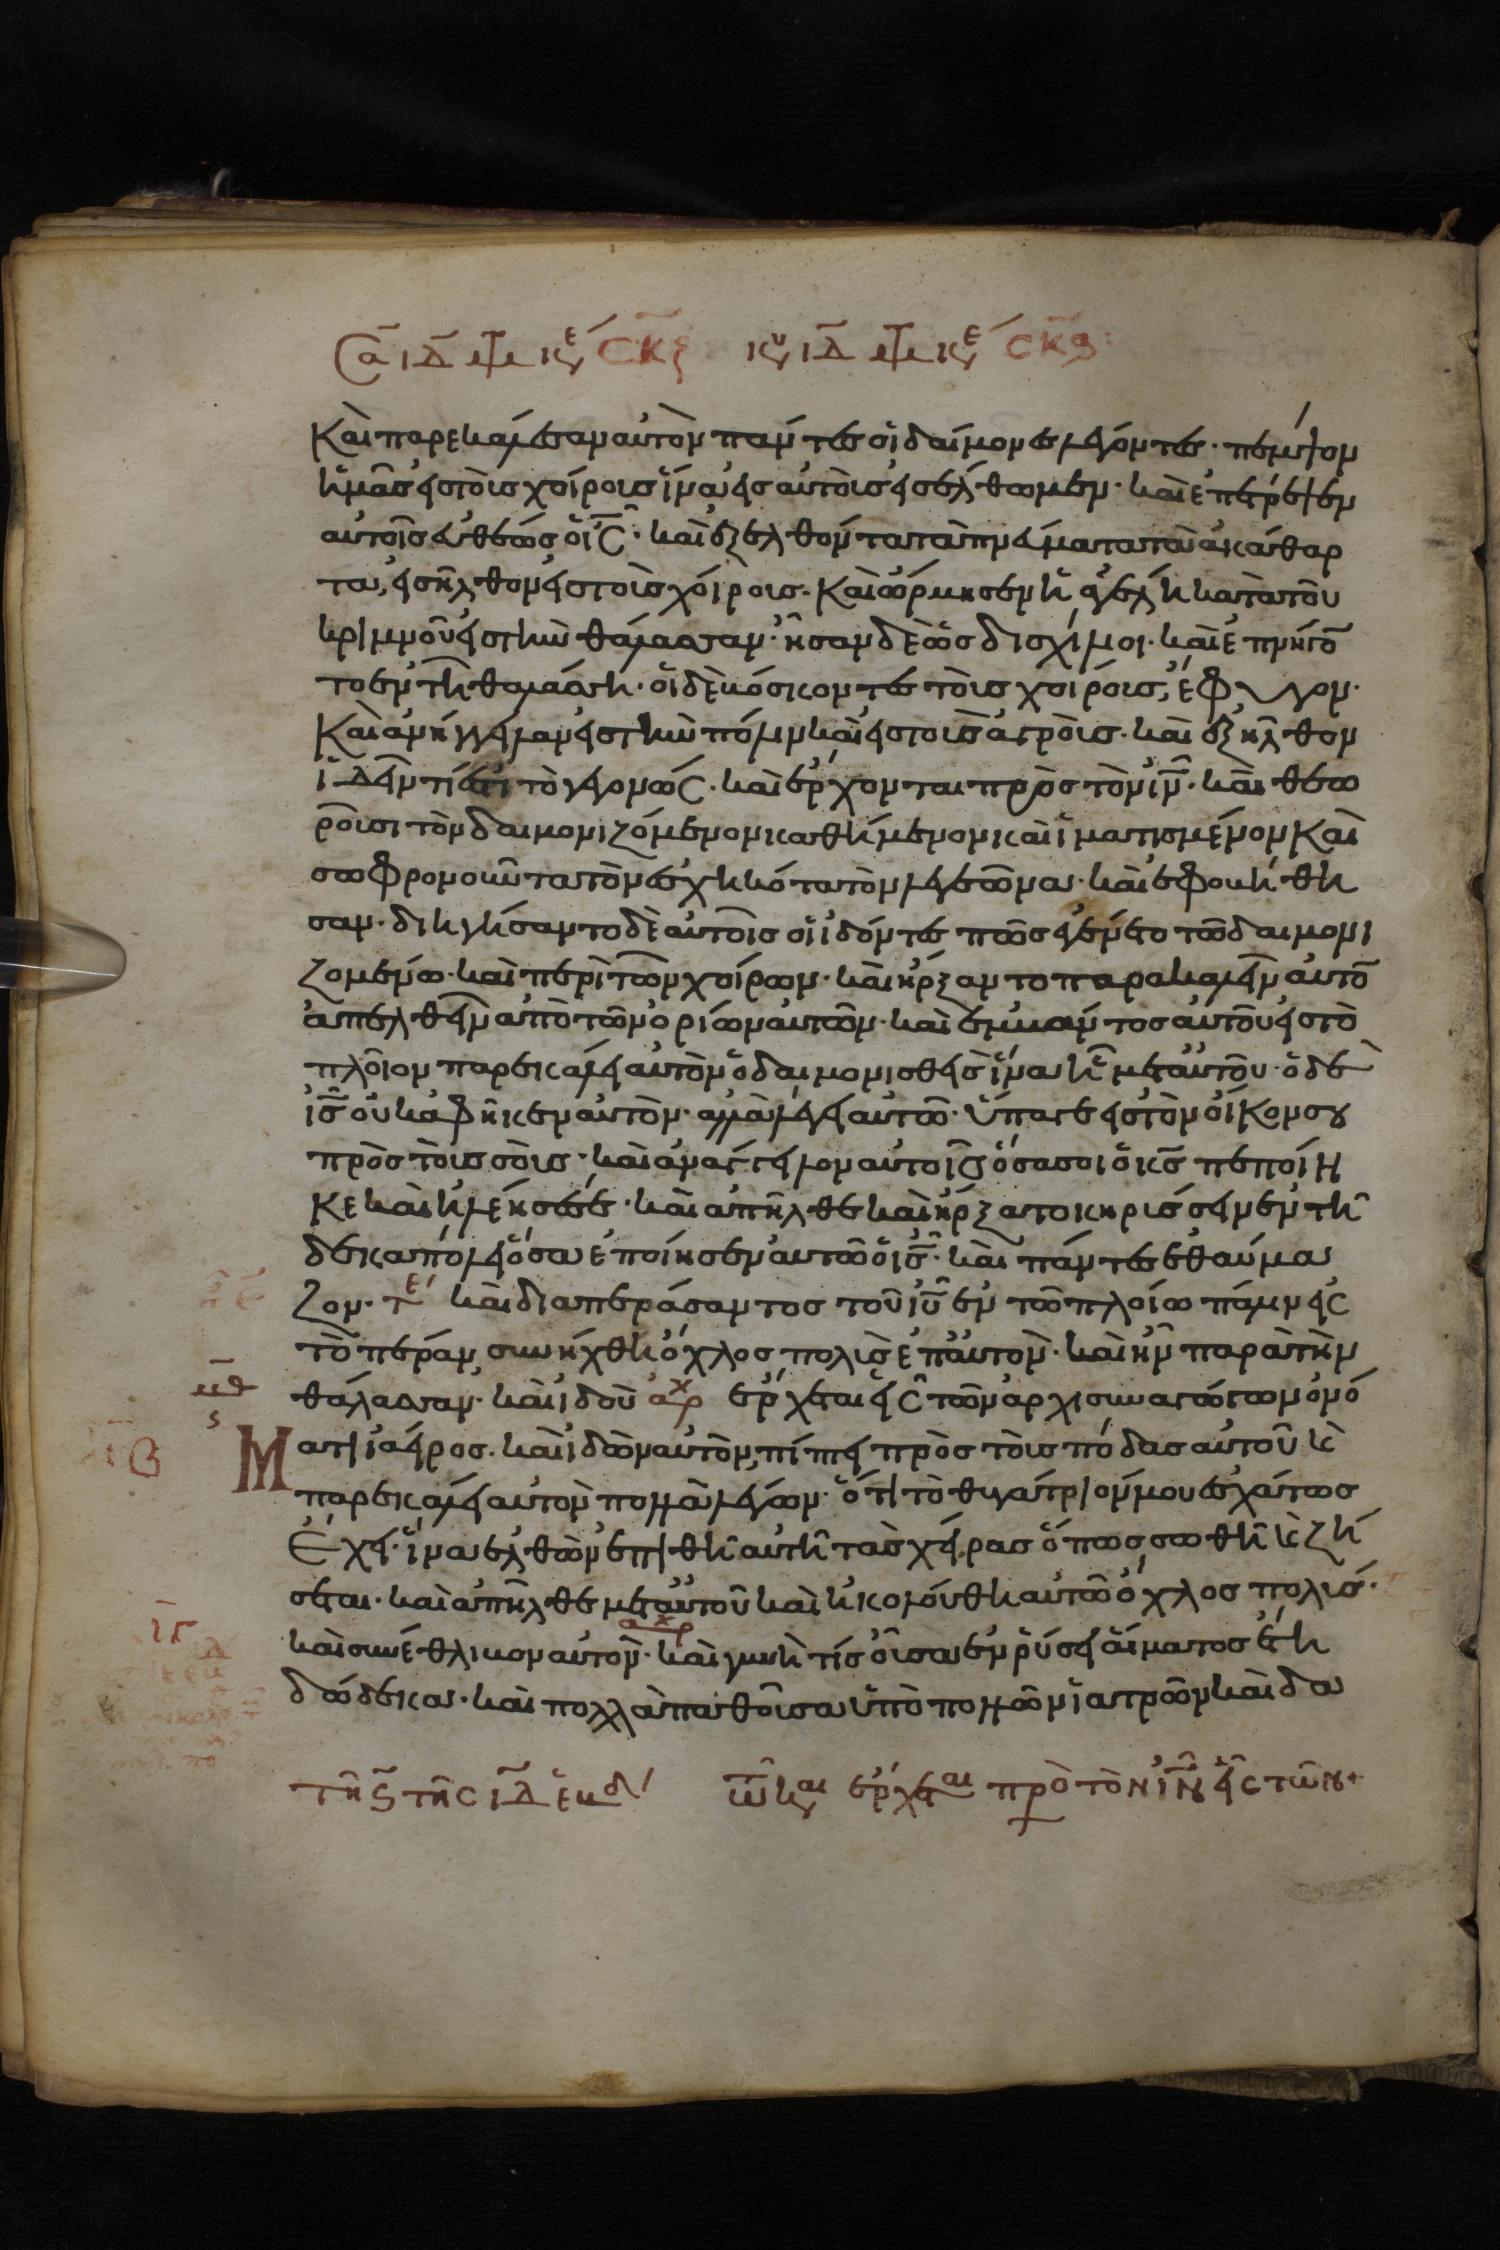 Καὶ παρεκάλεσαν αὐτὸν πάντες οἱ δαίμονες λέγοντες· πέμψον
ἡμᾶς εἰς τοὺς χοίρους ἵνα εἰς αὐτοὺς εἰσέλθωμεν· καὶ ἐπέτρεψεν
αὐτοῖς εὐθέως ὁ ι̅ς̅· καὶ ἐξελθόντα τὰ πνεύματα τὰ ἀκάθαρ
τα, εἰσῆλθον εἰς τοὺς χοίρους. Καὶ ὥρμησεν ἡ ἀγέλη κατὰ τοῦ
κρημνοῦ εἰς τὴν θάλασσαν· ἦσαν δὲ ὡς δισχίλιοι· καὶ ἐπνίγο
το ἐν τῇ θαλάσσῃ· οἱ δὲ βόσκοντες τοὺς χοίρους, ἔφυγον·
Καὶ ἀνήγγειλαν εἰς τὴν πόλιν καὶ εἰς τοὺς ἀγρούς· καὶ ἐξῆλθον
ἰδεῖν τί ἐστι τὸ γεγονώς· καὶ ἔρχονται πρὸς τὸν ι̅ν̅· καὶ θεω
ροῦσι τὸν δαιμονιζόμενον καθήμενον καὶ ἱματισμένον Καὶ
σωφρονοῦντα τὸν ἐσχηκότα τὸν λεγεῶνα· καὶ ἐφοβήθη
σαν· διηγήσαντο δὲ αὐτοῖς οἱ ἰδόντες πῶς ἐγένετο τῷ δαιμονι
ζομένῳ· καὶ περὶ τῶν χοίρων· καὶ ἤρξαντο παρακαλεῖν αὐτὸ
ἀπελθεῖν ἀπὸ τῶν ὁρίων αὐτῶν· καὶ ἐμβάντος αὐτοῦ εἰς τὸ
πλοῖον παρεκάλει αὐτὸν ὁ δαιμονισθεὶς ἵνα ᾖ μετ αὐτοῦ· ὁ δὲ
ι̅ς̅ οὐκ ἀφῆκεν αὐτὸν· ἀλλὰ λέγει αὐτῷ· ὕπαγε εἰς τὸν οἶκον σου
πρὸς τοὺς σοὺς· καὶ ἀνάγγειλον αὐτοῖς ὅσα σοι ὁ κ̅ς̅ πεποίη
κε καὶ ἠλέησέ σε· καὶ ἀπῆλθε καὶ ἤρξατο κηρύσσειν ἐν τῇ
δεκαπόλει ὅσα ἐποίησεν αὐτῷ ὁ ι̅ς̅· καὶ πάντες ἐθαύμα
ζον· τε καὶ διαπεράσαντος τοῦ ι̅υ̅ ἐν τῷ πλοίῳ πάλιν εἰς
τὸ πέραν, συνήχθη ὄχλος πολὺς ἐπ αὐτὸν· καὶ ἦν παρὰ τὴν
θάλασσαν· καὶ ἰδοὺ αρχ ἔρχεται εἷς τῶν ἀρχισυναγώγων ὀνό
Ματι ἰάειρος. καὶ ἰδὼν αὐτὸν, πίπτει πρὸς τοὺς πόδας αὐτοῦ κὲ
παρεκάλει αὐτὸν πολλὰ λέγων· ὅτι τὸ θυγάτριόν μου ἐσχάτως
ἔχει· ἵνα ἐλθὼν ἐπιθῇ αὐτῇ τὰς χεῖρας ὅπως σωθῇ κὲ ζή
σεται· καὶ ἀπῆλθε μετ αὐτοῦ καὶ ἠκολούθη αὐτῷ ὄχλος πολύς·
καὶ συνέθλιβον αὐτὸν· αρχ καὶ γυνὴ τίς οὖσα ἐν ῥύσει αἵματος ἔτη
δώδεκα· καὶ πολλὰ παθοῦσα ὑπὸ πολλῶν ἰατρῶν καὶ δα